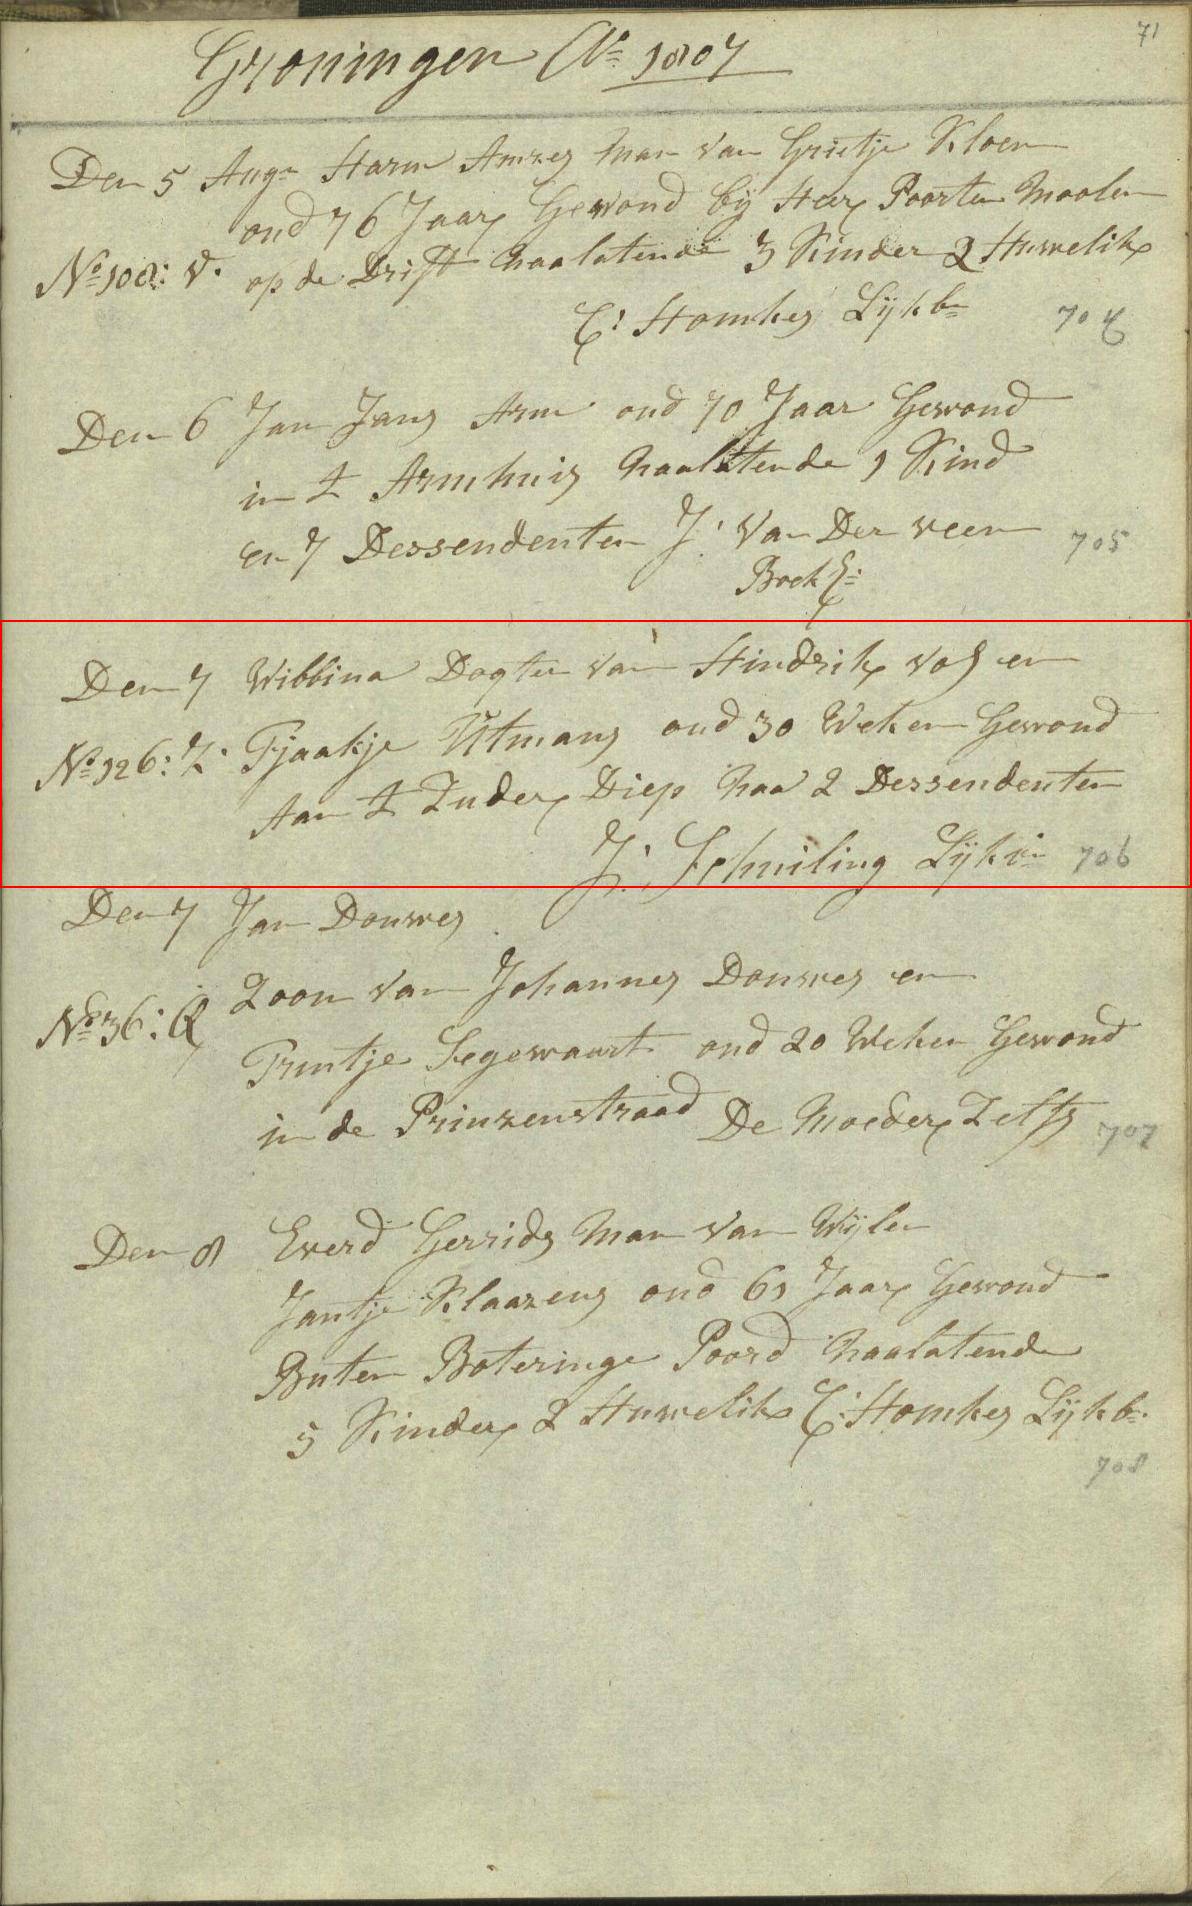 71
Groningen Ao 1807
Den 5 Augs Harm Amzes man van Grietje Kloen
oud 76 Jaar Gewond bÿ Heer Poorten Moolen
No 108: V. op de Drift naalatende 3 Kinder 2 Huwelik
E: Homkes Lÿkbr
704
Den 6 Jan Jans Arm oud 70 Jaar Gewond
in t Armhuis naalatende 1 Kind
en 7 Dessendenten J: van Der veen
Boekh:
705
Den 7 Wibbina Dogter van Hindrik vos en
No 126: Z. Tjaakje Utmans oud 30 Weken Gewond
Aan t Zuder Diep naa 2 Dessendenten
J: Schuiling Lÿkin
706
Den 7 Jan Douwes
Zoon van Johannes Douwes en
No 36: Q
Trintje Segewaart oud 20 Weken Gewond
in de Prinzenstraad De Moeder Zelfs
707
Den 8 Everd Gerrids Man van Wÿlen
Jantje Klaazens oud 61 Jaar Gewond
Buten Boteringe Poord naalatende
5 Kinder 2 Huwelik E: Homkes Lÿkb:
708